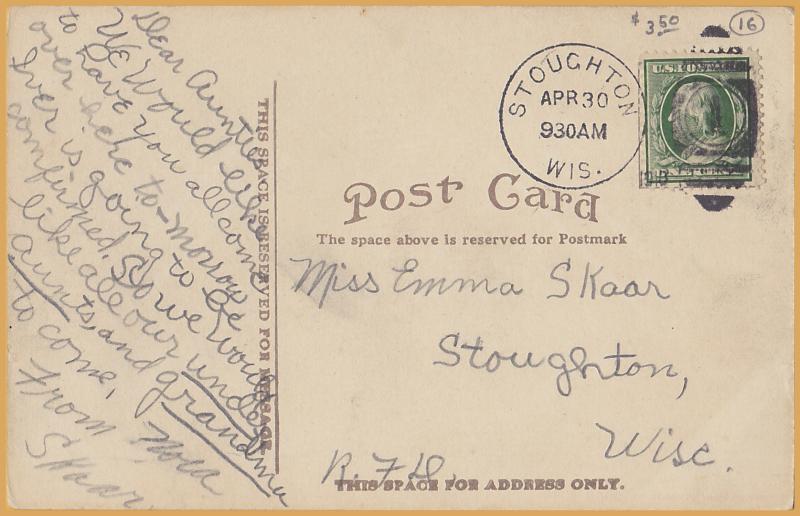 $3.50
16
Dear Aunties
We would like
to have you all come
over here to-morrow
Iver is going to be
comfirmed. So we would
like all our uncles
aunts, and grandma
to come,
From Nora
Skaar.
THIS SPACE IS RESERVED FOR MESSAGE
STOUGHTON
APR 30
930AM
WIS.
U.S. POSTAGE
Post Card
The space above is reserved for Postmark
Miss Emma Skaar
Stoughton,
Wisc.
R. F. D.
THIS SPACE FOR ADDRESS ONLY.